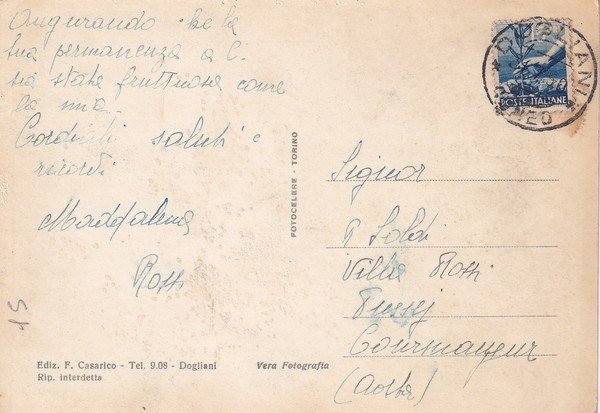 Augurando che la
tua permanenza a C.
sia stata fruttuosa come
la mia
Cordiali saluti e
ricordi
Maddalena
Rossi
15
Ediz. F. Casarico - Tel. 9.08 - Dogliani
Rip. interdetta
Vera Fotografia
FOTOCELERE - TORINO
POSTE ITALIANE
DOGLIANI
CUNEO
Signor
Soldi
Villa Rossi
Courmayeur
(Aosta)